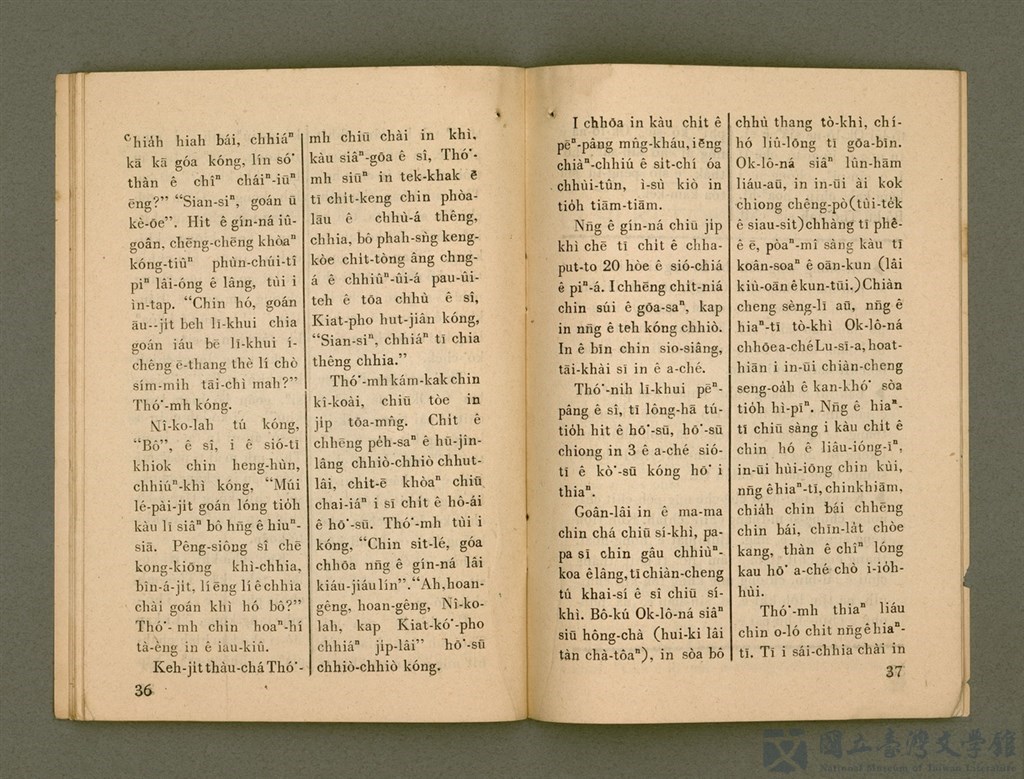 chiảh hiah bái, chhiáⁿ
kā kā góa kóng, lín só͘
thàn ê chîⁿ cháiⁿ-iūⁿ
ēng?” “Sian-siⁿ, goán ū
kè-ōe”. Hit ê gín-ná iû-
goân, chēng-chēng khòaⁿ
kóng-tiûⁿ phùn-chúi-tî
piⁿ lâi-óng ê lâng, tùi i
ìn-tap. “Chin hó, goán
āu--jit beh lī-khui chia
goán iáu bē lī-khui í-
chêng ē-thang thè lí chò
sím-mih tāi-chì mah?”
Thó͘-mh kóng.
Nî-ko-lah tú kóng,
“Bô”, ê sî, i ê sió-tī
khiok chin heng-hùn,
chhiúⁿ-khì kóng, “Múi
lé-pài-jit goán lóng tiỏh
kàu lī siâⁿ bô hn̄g ê hiuⁿ-
siā. Pêng-siông sî chē
kong-kiōng khì-chhia,
bîn-á-jit, lí ēng lí ê chhia
chài goán khì hó bô?”
Thó͘-mh chin hoaⁿ-hí
tà-èng in ê iau-kiû.
Keh-jit thàu-chá Thó͘-
36
mh chiū chài in khì.
kàu siâⁿ-gōa ê sî, Thó͘-
mh siūⁿ in tek-khak ē
tī chit-keng chin phòa-
lāu ê chhù-á thêng,
chhia, bô phah-sǹg keng-
kòe chit-tòng âng chng-
á ê chhiûⁿ-ûi-á pau-ûi-
teh ê tōa chhù ê sî,
Kiat-pho hut-jiân kóng,
“Sian-siⁿ, chhiáⁿ tī chia
thêng chhia.”
Thó͘-mh kám-kak chin
kî-koài, chiū tòe in
jip tōa-mn̂g. Chit ê
chhēng pẻh-saⁿ ê hū-jîn-
lâng chhiò-chhiò chhut-
lâi, chit-ē khòaⁿ chiū
chai-iáⁿ i sī chit ê hô-ái
ê hō͘-sū. Thó͘-mh tùi i
kóng, “Chin sit-lé, góa
chhōa nn̄g ê gín-ná lâi
kiáu-jiáu lín”. “Ah, hoan-
gêng, hoan-gêng, Nî-ko-
lah, kap Kiat-kó͘-pho
chhiáⁿ jip-lâi” hō͘-sū
chhiò-chhiò kóng.
I chhōa in kàu chit ê
pēⁿ-pâng mn̂g-kháu, iēng
chiàⁿ-chhiú ê sit-chí óa
chhùi-tûn, ì-sù kiò in
tiỏh tiām-tiām.
Nn̄g ê gín-ná chiū jip
khì chē tī chit ê chha-
put-to 20 hòe ê sió-chiá
ê piⁿ-á. I chhēng chit-niá
chin súi ê gōa-saⁿ, kap
in nn̄g ê teh kóng chhiò.
In ê bīn chin sio-siâng,
tāi-khài sī in ê a-ché.
Thó͘-nih lī-khui pēⁿ-
pâng ê sî, tī lông-hā tú-
tiỏh hit ê hō͘-sū, hō͘-sū
chiong in 3 ê a-ché sió-
tī ê kò͘-sū kóng hō͘ i
thiaⁿ.
Goân-lâi in ê ma-ma
chin chá chiū sí-khì, pa-
pa sī chin gâu chhiùⁿ-
koa ê lâng, tī chiàn-cheng
tú khai-sí ê sî chiū sí-
khì. Bô-kú Ok-lô-ná siâⁿ
siū hông-chà (hui-ki lâi
tàn chà-tôaⁿ), in sòa bô
chhù thang tò-khì, chí-
hó liû-lōng tī gōa-bīn.
Ok-lô-ná siâⁿ lûn-hām
liáu-aū, in in-ūi ài kok
chiong chêng-pò (tùi-tẻk
ê siau-sit) chhàng tī phê-
ê ē, pòaⁿ-mî sàng kàu tī
koân-soaⁿ ê oān-kun (lâi
kiù-oān ê kun-tūi.) Chiàn
cheng sèng-lī aū, nn̄g ê
hiaⁿ-tī tò-khì Ok-lô-ná
chhōe a-ché Lu-sī-a, hoat-
hiān i in-ūi chiàn-cheng
seng-oảh ê kan-khó͘ sòa
tiỏh hì-pīⁿ. Nn̄g ê hiaⁿ-
tī chiū sàng i kàu chit ê
chin hó ê liâu-ióng-īⁿ,
in-ūi hùi-iōng chin kùi,
nn̄g ê hiaⁿ-tī, chin khiām,
chiảh chin bái chhēng
chin bái, chīn-lảt chòe
kang, thàn ê chîⁿ lóng
kau hō͘ a-ché chò i-iỏh-
hùi.
Thó͘-mh thiaⁿ liáu
chin o-ló chit nn̄g ê hiaⁿ-
tī. Tī i sái-chhia chài in
37
國立臺灣文學館
National Museum of Taiwan Literature